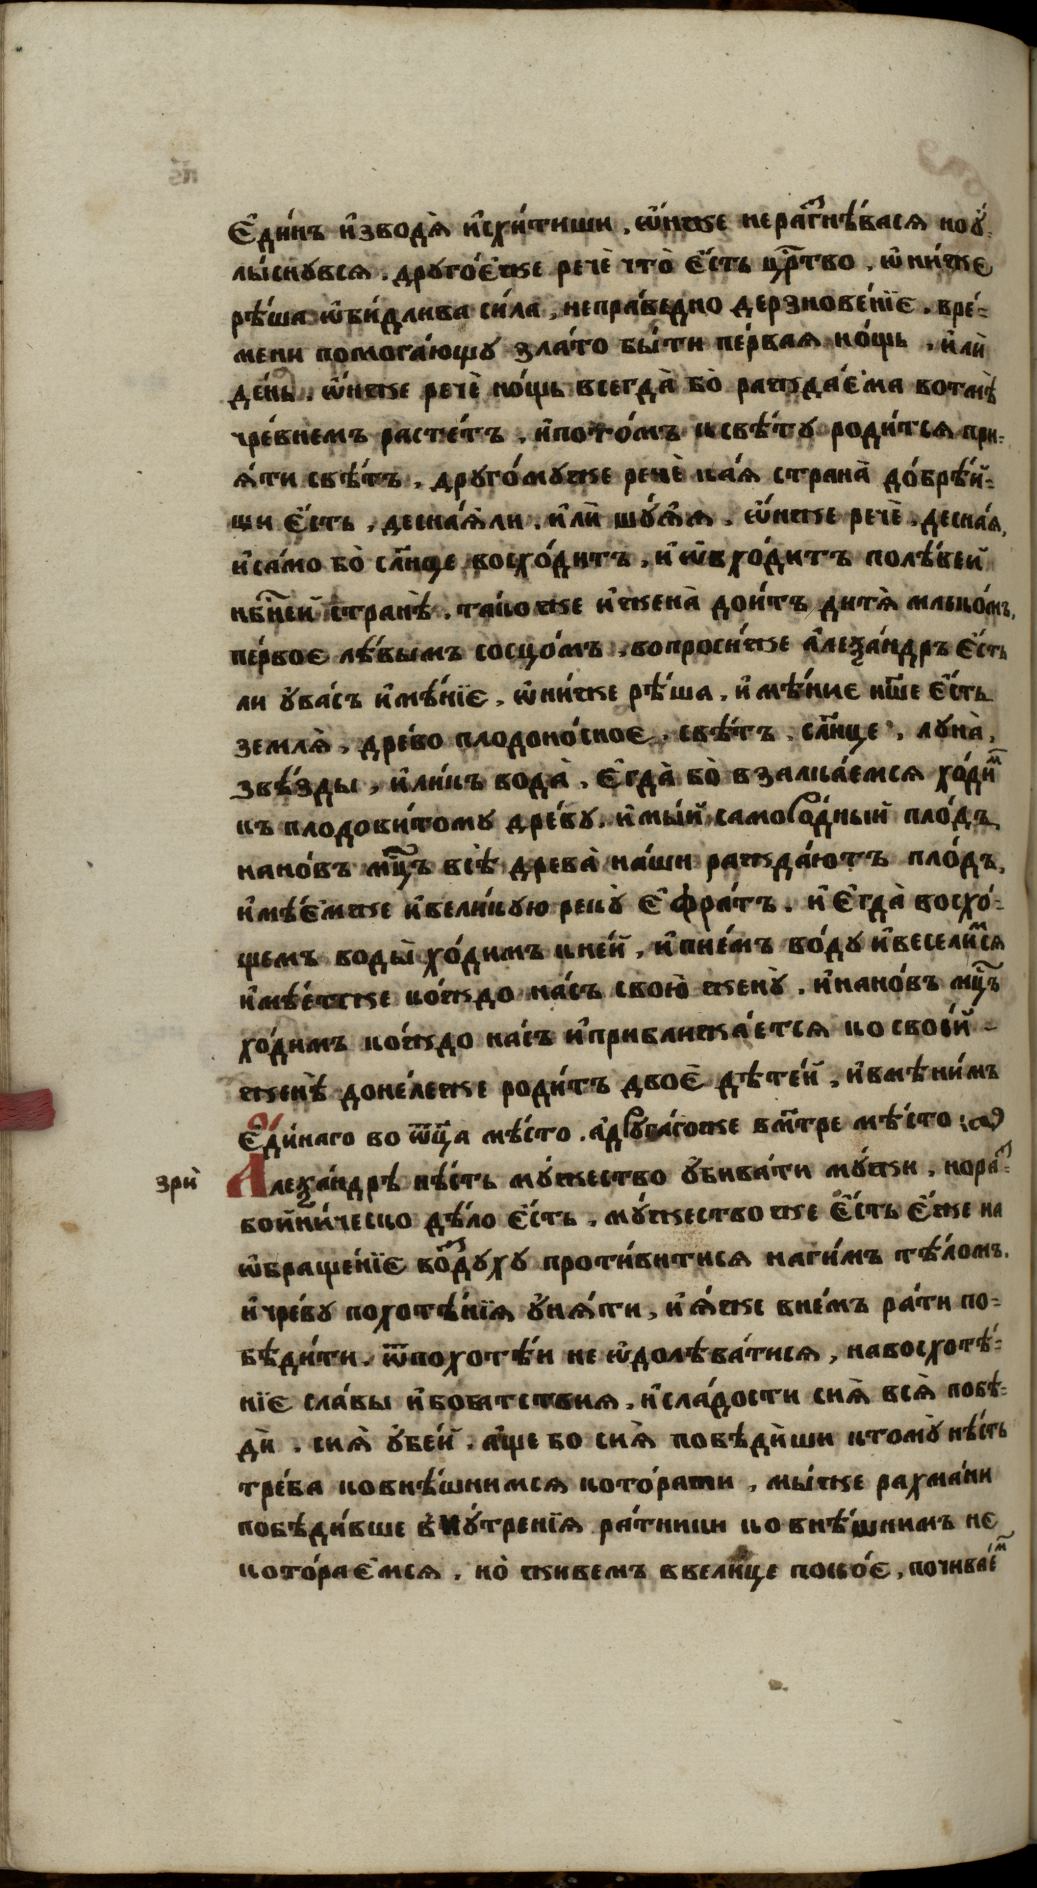 Є҆ди́нъ и҆зводѧ̀ и҆схи́тиши, ѡ҆́нже нераⷥ҇гнѣ́васѧ ноу҆-
лы́снувсѧ. друго́є҆же речѐ что̀ є҆́сть црⷭ҇тво, ѡ҆ни́же
рѣ́ша ѡ҆би́длива си́ла, непра́ведно дерзнове́нїє. вре́-
мени помога́ющу злато бы́ти пе́рвая но́щь, и҆лѝ
де́нь. ѡ҆́нже речѐ но́щь всегда̀ бо̀ ражда́є҆ма вотмѣ̀
чре́внемъ расте́тъ, и҆пото́мъ ксвѣ́ту роди́тсѧ при-
ѧ́ти свѣ́тъ. друго́муже речѐ ка́ѧ страна̀ до́брѣй-
ши є҆́сть, десна́ѧли, и҆лѝ шу́ѧѧ. ѡ҆́нже речѐ, десна́ѧ,
и҆са́мо бо̀ сл҃нце восхо́дитъ, и҆ ѡ҆бхо́дитъ полѣ́вей
нбⷭ҇ней странѣ̀. та́коже и҆жена̀ дои́тъ дитѧ̀ млеко́мъ,
пе́рвоє лѣ́вымъ сосцо́мъ. вопроси́же а҆леѯа́ндръ є҆́сть
ли ѹ҆ва́съ и҆мѣ́нїє. ѡ҆ни́же рѣ́ша, и҆мѣ́ниє нш҃е є҆́сть
землѧ̀, дре́во плодоно́сноє, свѣ́тъ, сл҃нце, луна̀,
звѣ́зды, и҆ли́къ вода̀. є҆гда̀ бо̀ взалка́емсѧ хо́диⷨ
къ плодови́тому дре́ву. и҆мы́й саморо́дный пло́дъ
нано́въ мцⷭ҇ъ всѣ̀ древа̀ на́ши ражда́ютъ пло́дъ,
и҆мѣ́є҆мже и҆вели́кую реку̀ є҆фра́тъ. и҆ є҆гда̀ восхо́-
щемъ воды̀ хо́димъ кне́й, и҆пие́мъ во́ду и҆весели́ⷨсѧ
и҆мѣ́етже ко́ждо на́съ свою̀ жену̀. и҆нано́въ мцⷭ҇ъ
хо́димъ ко́ждо насъ и҆приближа́етсѧ ко свое́й
женѣ̀ доне́леже роди́тъ двоє҆ дѣ́тей, и҆вмѣ́ни́мъ
Є҆ди́наго во ѿц҃а мѣ́сто. а҆друга́гоже вмт҃ре мѣ́сто
зрѝ
Алеѯа́ндрѣ нѣ́сть му́жество ѹ҆бива́ти му́жи, нораⷥ҇-
бойни́ческо дѣ́ло є҆́сть. му́жество же є҆́сть є҆́же на
ѡ҆браще́нїє воⷥ҇духу проти́витисѧ наги́мъ тѣ́ломъ.
и҆чре́ву похотѣ́нїѧ ѹ҆нѧ́ти, и҆ ꙗ҆́же вне́мъ ра́ти по-
бѣди́ти. ѿпохотѣ́и не ѡ҆долѣва́тисѧ, навосхотѣ́-
нїє сла́вы и҆богатствиѧ. и҆сла́дости сиѧ̀ всѧ̀ побѣ-
дѝ. сиѧ̀ ѹ҆бе́й. а҆́ще бо сиѧ̀ побѣди́ши ктому̀ нѣ́сть
тре́ба ковнѣ́шнимсѧ кото́рати, мы́же рахма́ни
побѣди́вше внꙋ́тренїѧ ра́тники ко внѣ́шнимъ не
кото́раємсѧ. но̀ живемъ ввели́це поко́є, почива́еⷨ